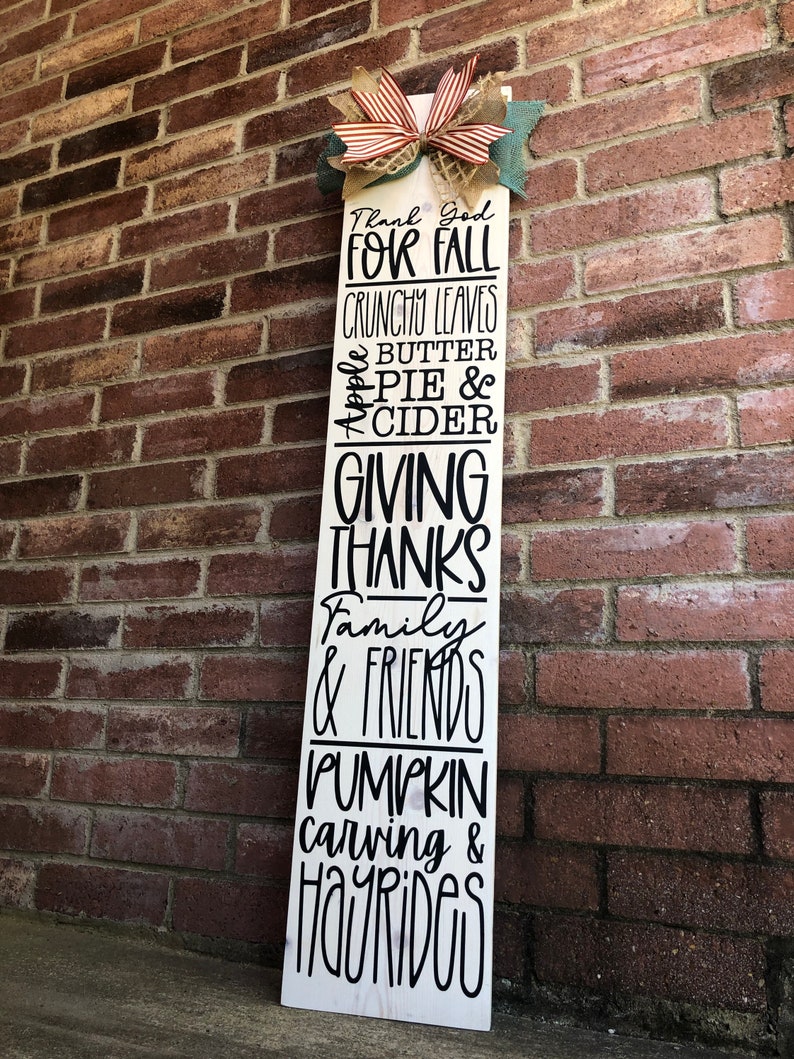 Thank God
FOR FALL
CRUNCHY LEAVES
Apple BUTTER
PIE &
CIDER
GIVING
THANKS
Family
& FRIENDS
PUMPKIN
carving &
HAYRIDES